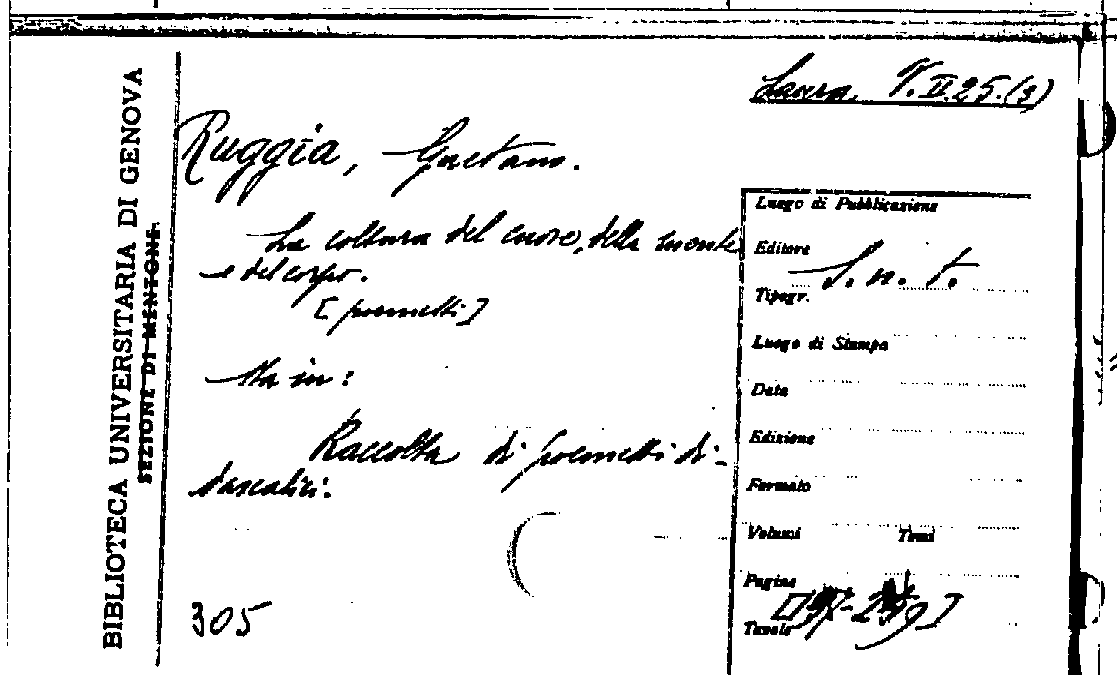 Laura. V.II.25.(3)
BIBLIOTECA UNIVERSITARIA DI GENOVA
SEZIONE DI MENTONE.
Ruggia, Gaetano.
La coltura del cuore, della mente
e del corpo.
[poemetti]
Sta in:
Raccolta di poemetti di-
dascalici.
305
Luogo di Pubblicazione
Editore
S. n. t.
Tipogr.
Luogo di Stampa
Data
Edizione
Formato
Volumi Tomi
Pagine
Tavole